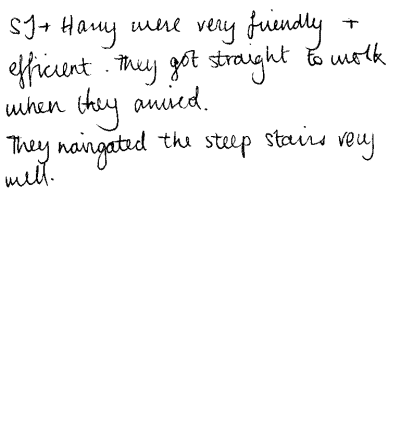 SJ + Harry were very friendly +
efficient. They got straight to work
when they arrived.
They navigated the steep stairs very
well.